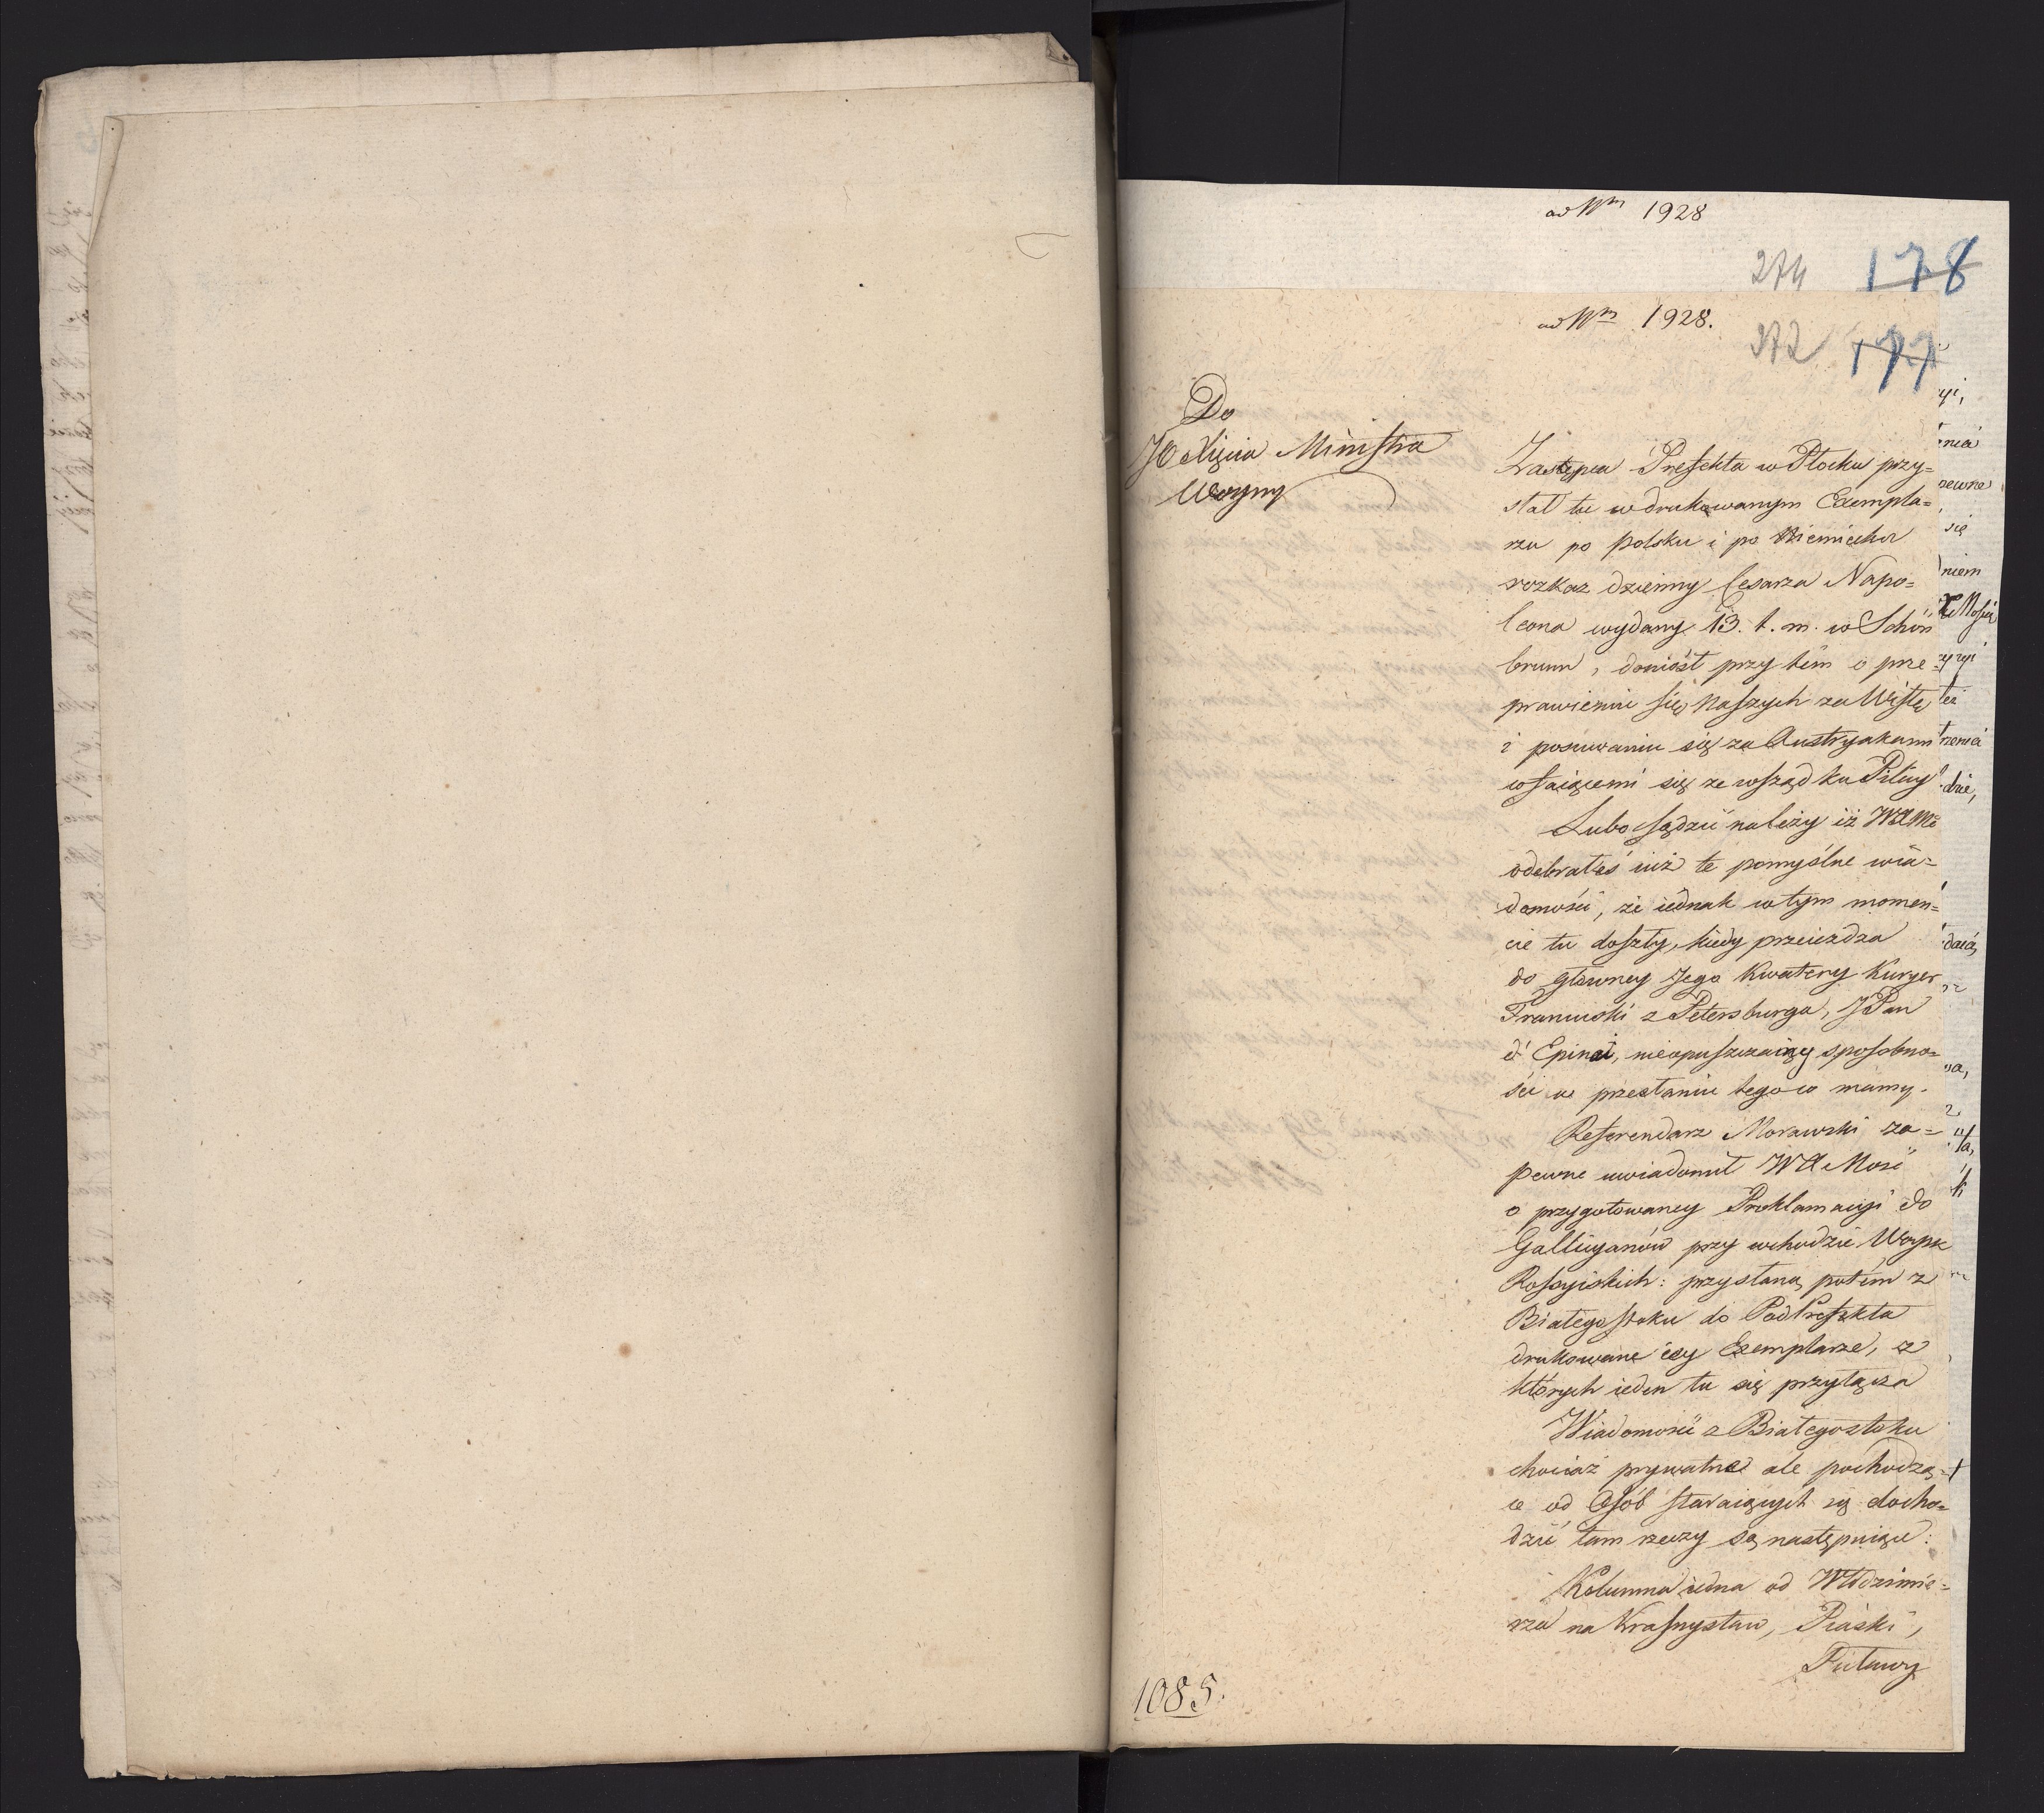 ad Nrm 1928
274 178
ad Nrm 1928.
272 177
Do
JO Xięcia Ministra
Woyny
Zastępca Prefekta w Płocku przy=
słał tu w drukowanym Exempla=
rzu po polsku i po Niemiecku
rozkaz dzienny Cesarza Napo=
leona wydany 13. t. m. w Schön
brunn, doniósł przy tém o prze
prawieniu się Naszych za Wisłę
i posuwaniu się za Austryakami
cofaiącemi się ze wsząd ku Pilicy
Lubo sądzić należy iż WXMć
odebrałeś iuż te pomyślne wia=
domości, że iednak w tym momen=
cie tu doszły, kiedy przeieżdza
do główney Jego Kwatery Kuryer
Francuski z Petersburga, JPan
d' Epinai, nieopuszczaiąc sposobno=
ści w przesłaniu tego co mamy.
Referendarz Morawski za=
pewne uwiadomił WXMość
o przygotowaney Proklamacyi do
Gallicyanów przy wchodzie Woysk
Rossyiskich: przysłano potém z
Białegostoku do PodPrefekta
drukowane iey Exemplarze, z
których ieden tu się przyłącza
Wiadomości z Białegostoku
chociaż prywatne ale pochodzą=
ce od Osób staraiących się docho=
dzić tam rzeczy są następuiące:
Kolumna iedna od Włodzimie=
rza na Krasnystaw, Piaski,
Puławy
1085.